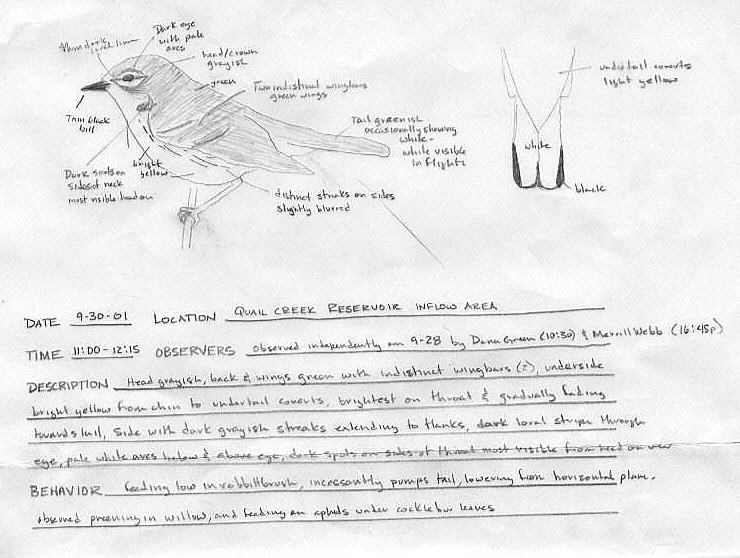 Thin dark loral line
Dark eye
with pale
arcs
head/crown
grayish
green
Two indistinct wingbars
green wings
Thin black
bill
Tail greenish
occasionally showing
white -
white visible
in flight
Dark spots on
sides of neck
most visible head on
bright
yellow
distinct streaks on sides
slightly blurred
undertail coverts
light yellow
white
black
DATE 9-30-01 LOCATION QUAIL CREEK RESERVOIR INFLOW AREA
TIME 11:00-12:15 OBSERVERS observed independently on 9-28 by Dana Green (10:30) & Merrill Webb (16:45p)
DESCRIPTION Head grayish, back & wings green with indistinct wingbars (2), underside
bright yellow from chin to undertail coverts, brightest on throat & gradually fading
towards tail, Side with dark grayish streaks extending to flanks, dark loral stripe through
eye, pale white arcs below & above eye, dark spots on sides of throat most visible from head on view
BEHAVIOR feeding low in rabbitbrush, incessantly pumps tail, lowering from horizontal plane.
observed preening in willow, and feeding on aphids under cocklebur leaves